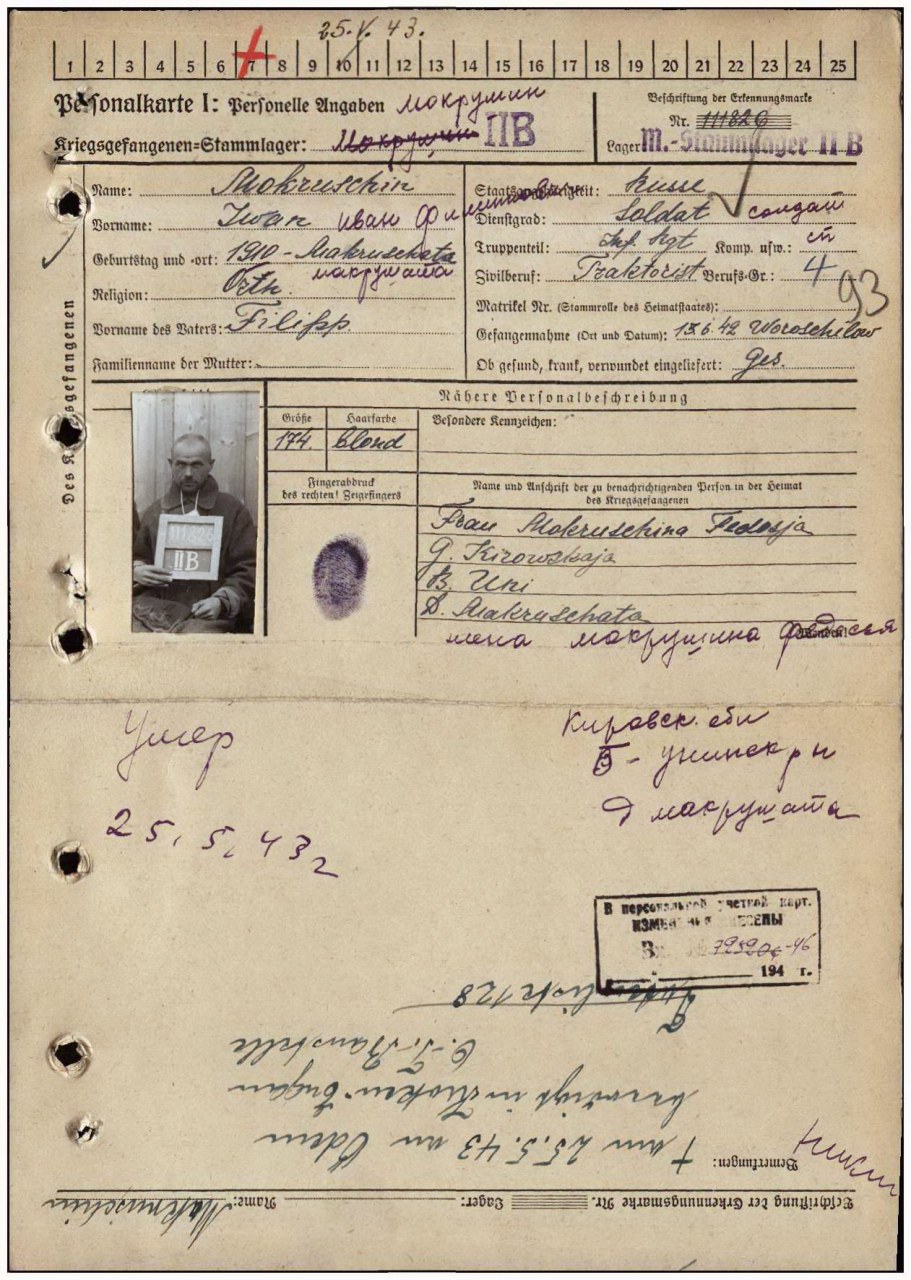 25.V.43.
1 2 3 4 5 6 7 8 9 10 11 12 13 14 15 16 17 18 19 20 21 22 23 24 25
Personalkarte I: Personelle Angaben Мокрушин
Kriegsgefangenen=Stammlager: Мокрушин II B
Beschriftung der Erkennungsmarke
Nr. 111826
Lager: M.-Stammlager II B
Des Kriegsgefangenen
Name: Mokruschin
Vorname: Iwan Иван
Geburtstag und -ort: 1910 - Makruschata
Макрушата
Religion: Orth.
Vorname des Vaters: Filipp.
Familienname der Mutter:
Staatsangehörigkeit: Russe
Dienstgrad: Soldat солдат
Truppenteil: Inf. Rgt Komp. usw.: сп
Zivilberuf: Traktorist Berufs-Gr.: 4
93
Matrikel Nr. (Stammrolle des Heimatstaates):
Gefangennahme (Ort und Datum): 13.6.42 Woroschilow
Ob gesund, krank, verwundet eingeliefert: ges.
Nähere Personalbeschreibung
Größe Haarfarbe Besondere Kennzeichen:
174. blond
Fingerabdruck
des rechten! Zeigefingers
Name und Anschrift der zu benachrichtigenden Person in der Heimat
des Kriegsgefangenen
Frau Mokruschina Fedosja
G. Kirowskaja
B. Uni
D. Makruschata
111826
II B
жена Мокрушина Федосья
Умер
25.5.43 г
Кировск. обл
Унинск р н
Д Макрушата
В персональной учетной карт.
ИЗМЕНЕНИЯ ВНЕСЕНЫ
194 г.
128
O.-T.-Baustelle
beerdigt in
† am 25.5.43 an Ödem
Bemerkungen:
Beschriftung der Erkennungsmarke Nr. Lager: Name: Mokruschin